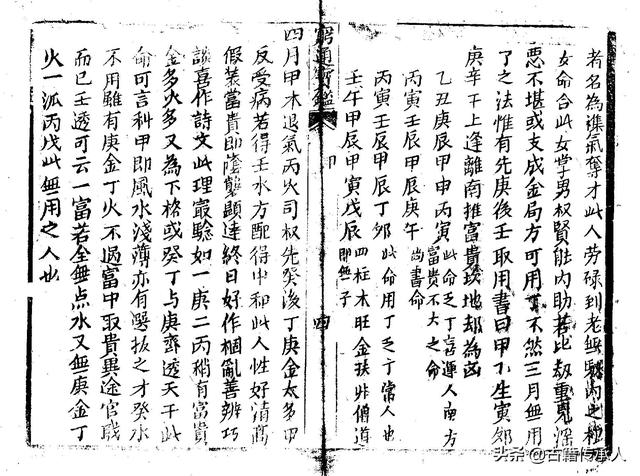 者名為襍氣奪才此人勞碌到老無馭內之權
女命合此女掌男權賢能內助若比劫重見深
惡不堪或支成金局方可用丁不然三月無用
丁之法惟有先庚後壬取用書曰甲乙生寅夘
庚辛干上逢離南推富貴坎地却為凶
乙丑庚辰甲申丙寅 此命乏丁喜運入南方
富貴不大之命
丙寅壬辰甲辰庚午 尚書命
丙寅壬辰甲辰丁夘 此命用丁乏于富人也
壬午甲辰甲寅戊辰 四柱木旺金扶非僧道
即無子
窮通寶鑑
甲
四
四月甲木退氣丙火司权先癸後丁庚金太多甲
反受病若得壬水方配得中和此人性好清高
假裝富貴即蔭襲顯達終日好作禍亂善辨巧
談喜作詩文此理最驗如一庚二丙稍有富貴
金多火多又為下格或癸丁与庚齊透天干此
命可言科甲即風水淺薄亦有選拔之才癸水
不用雖有庚金丁火不過富中取貴異途官職
而已壬透可云一富若全無点水又無庚金丁
火一派丙戊此無用之人也
头条@古籍传承人